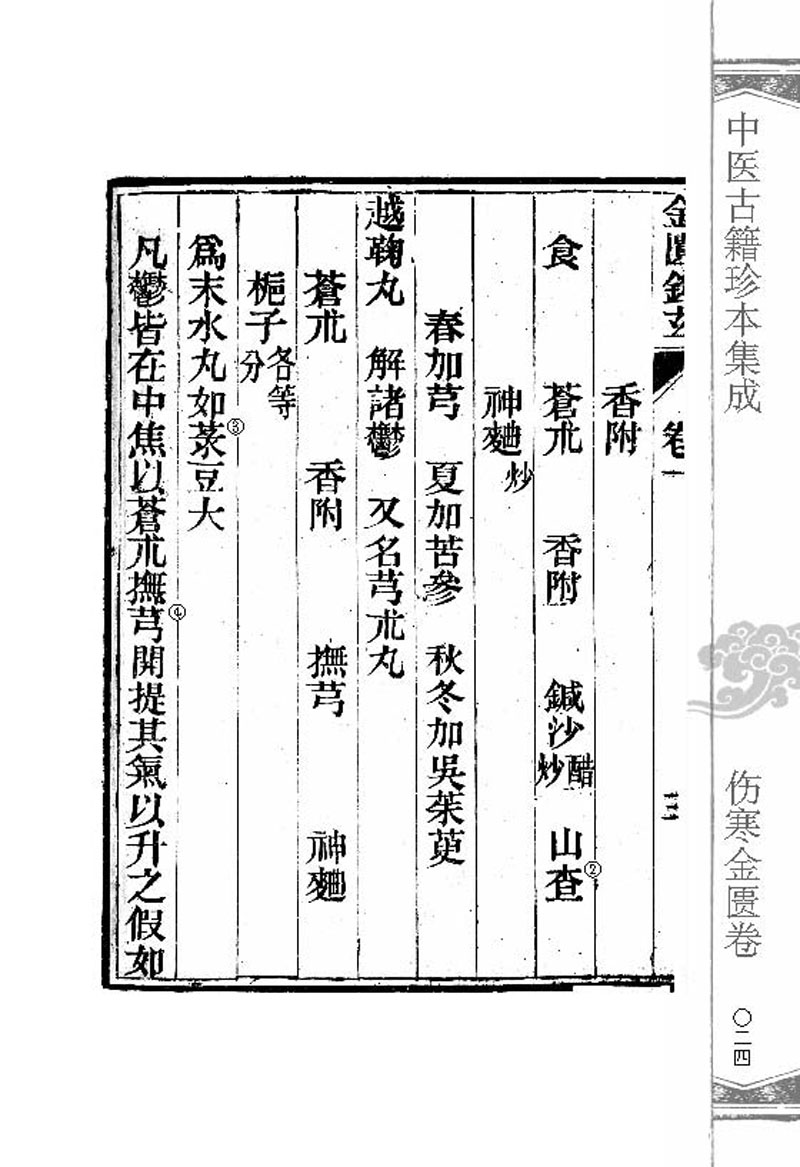 中医古籍珍本集成
伤寒金匮卷
〇二四
金匱鉤玄 卷一
香附
食 蒼朮 香附 鍼沙醋炒 山查②
神麯炒
春加芎 夏加苦參 秋冬加吳茱萸
越鞠丸 解諸鬱 又名芎朮丸
蒼朮 香附 撫芎 神麯
梔子各等分
爲末水丸如菉豆大③
凡鬱皆在中焦以蒼朮撫芎開提其氣以升之假如④